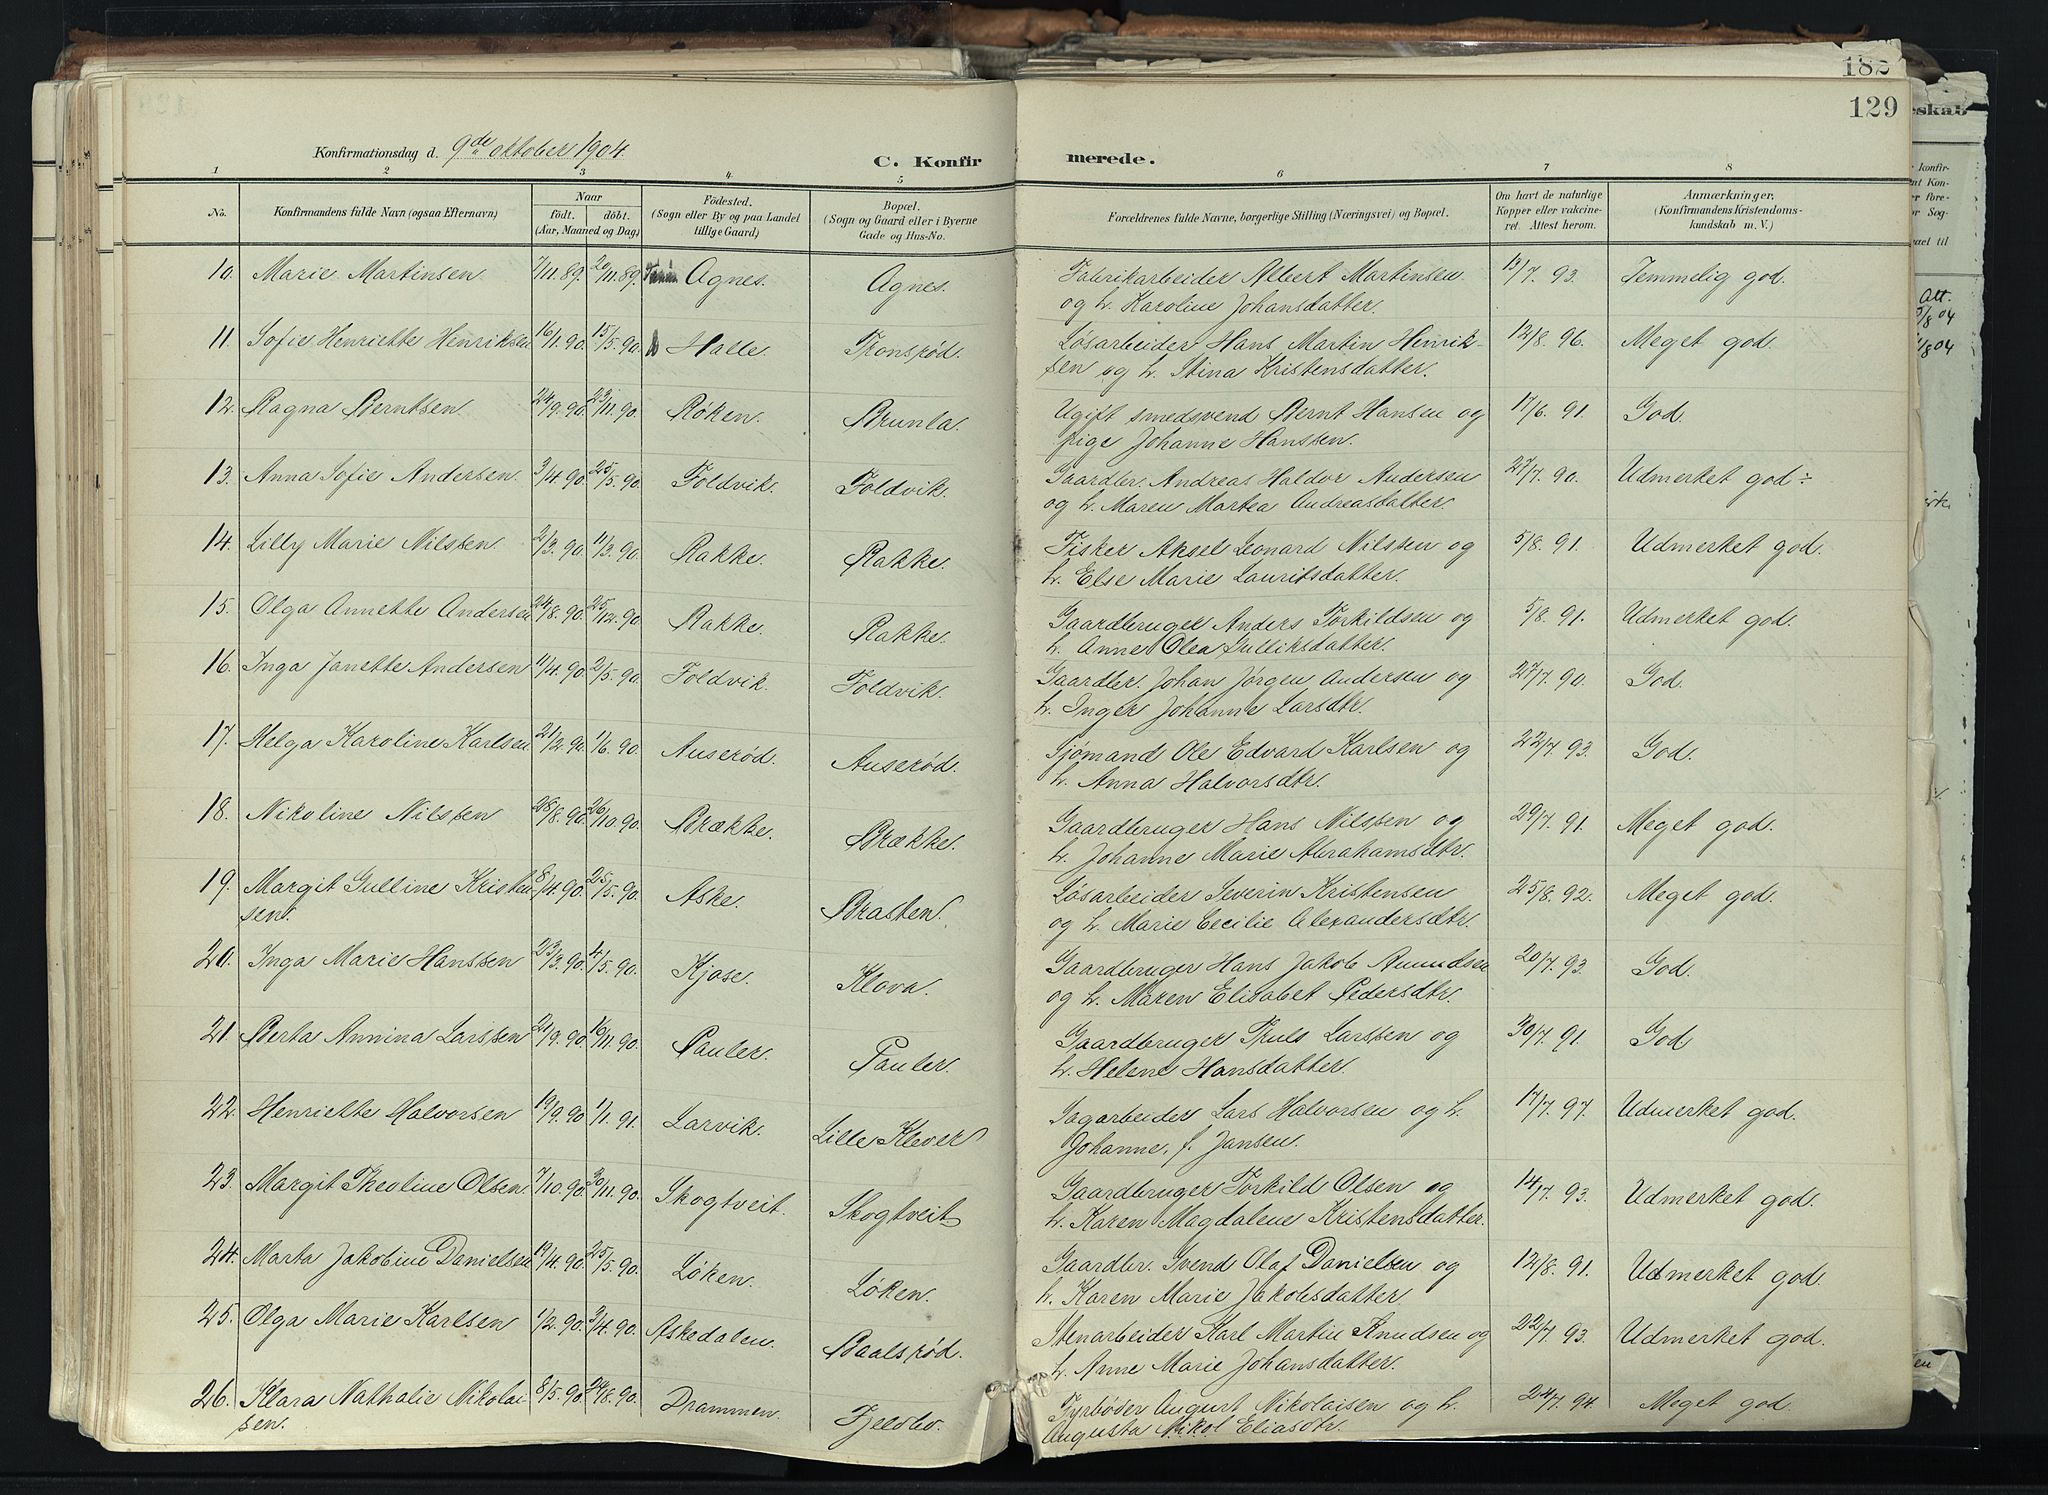 182
129
Konfirmationsdag d. 9de oktober 1904.
C. Konfirmerede.
1 2 3 4 5 6 7 8
No. Konfirmandens fulde Navn (ogsaa Efternavn) Naar født. døbt. (Aar, Maaned og Dag) Fødested. (Sogn eller By og paa Landet tillige Gaard) Bopæl. (Sogn og Gaard eller i Byerne Gade og Hus-No. Forældrenes fulde Navne, borgerlige Stilling (Næringsvei) og Bopæl. Om havt de naturlige Kopper eller vakcineret. Attest herom. Anmærkninger. (Konfirmandens Kristendomskundskab m. V.)
10. Marie Martinsen 7/11.89. 20/11.89. Agnes. Agnes. Fabrikarbeider Albert Martinsen 13/7. 93. Temmelig god.
og h. Karoline Johansdatter.
11. Sofie Henriette Henriksen 16/1.90. 15/5.90. Halle. Tronsrød. Løsarbeider Hans Martin Henrik- 12/8. 96. Meget god.
sen og h. Stina Kristensdatter.
12. Ragna Berntsen 24/9.90. 23/11.90. Røken. Brunla. Ugift smedsvend Bernt Hansen og 17/6. 91. God.
pige Johanne Hanssen.
13. Anna Sofie Andersen. 3/4.90. 25/5.90. Foldvik. Foldvik. Gaardbr. Andreas Haldor Andersen 27/7. 90. Udmerket god ÷
og h. Maren Martea Andreasdatter.
14. Lilly Marie Nilssen. 2/3.90. 11/3.90. Rakke. Rakke. Fisker Aksel Leonard Nilssen og 5/8. 91. Udmerket god.
h. Else Marie Lauritsdatter.
15. Olga Annette Andersen 24/8.90. 25/12.90. Rakke. Rakke. Gaardbruger Anders Torkildsen og 5/8. 91. Udmerket god.
h. Anne Olea Gulliksdatter.
16. Inga Janette Andersen 11/4.90. 2/5.90. Foldvik. Foldvik. Gaardbr. Johan Jørgen Andersen og 27/7. 90. God.
h. Inger Johanne Larsdtr.
17. Helga Karoline Karlsen 21/2.90. 1/6.90. Auserød. Auserød. Sjømand Ole Edvard Karlsen og 22/7. 93. God.
h. Anna Halvorsdtr.
18. Nikoline Nilssen 28/8.90. 26/10.90. Brække. Brække. Gaardbruger Hans Nilssen og 29/7. 91. Meget god.
h. Johanne Marie Abrahamsdtr.
19. Margit Gulline Kristen- 8/4.90. 25/5.90. Aske. Brasten. Løsarbeider Severin Kristensen 25/8. 92. Meget god.
sen. og h. Marie Cecilie Alexandersdtr.
20. Inga Marie Hanssen 23/3.90. 4/5.90. Kjose. Klova. Gaardbruger Hans Jakob Amundsen 20/7. 93. God.
og h. Maren Elisabet Pedersdtr.
21. Berta Annina Larssen 21/9.90. 16/11.90. Pauler. Pauler. Gaardbruger Truls Larssen og 30/7. 91. God
h. Helene Hansdatter.
22. Henriette Halvorsen 19/9.90 1/1.91. Larvik. Lille Klever Sagarbeider Lars Halvorsen og h. 17/7. 97. Udmerket god.
Johanne, f. Jansen.
23. Margit Theoline Olsen. 7/10.90. 30/11.90. Skogtveit. Skogtveit Gaardbruger Torkild Olsen og 14/7. 93. Udmerket god.
h. Karen Magdalene Kristensdatter.
24. Marta Jakobine Danielsen 19/4.90. 25/5.90. Løken. Løken. Gaardbr. Svend Olaf Danielsen og 12/8. 91. Udmerket god.
h. Karen Marie Jakobsdatter.
25. Olga Marie Karlsen 1/2.90. 3/4.90. Askedalen. Baalsrød. Stenarbeider Karl Martin Knudsen og 22/7. 93. Udmerket god.
h. Anne Marie Johansdatter.
26. Klara Nathalie Nikolai- 8/5.90. 24/8.90. Drammen. Fyrbøder August Nikolaisen og h. 24/7. 94. Meget god.
sen. Augusta Nikol Eliasdtr.